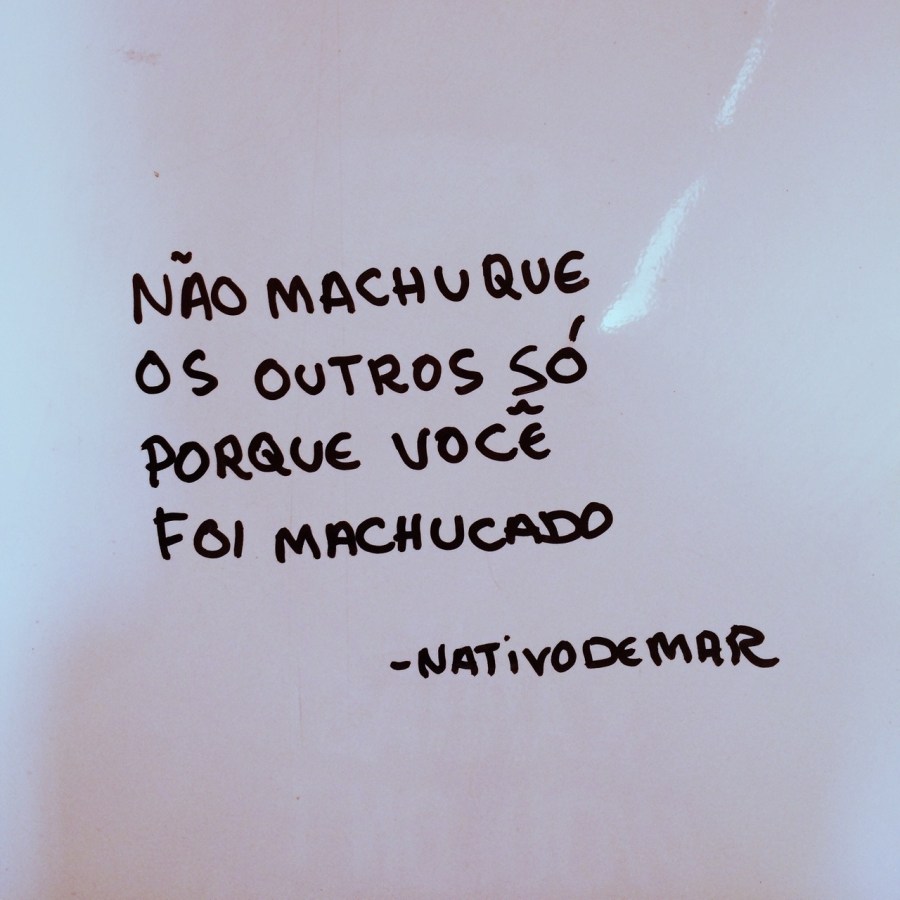 NÃO MACHUQUE
OS OUTROS SÓ
PORQUE VOCẼ
FOI MACHUCADO
-NATIVODEMAR